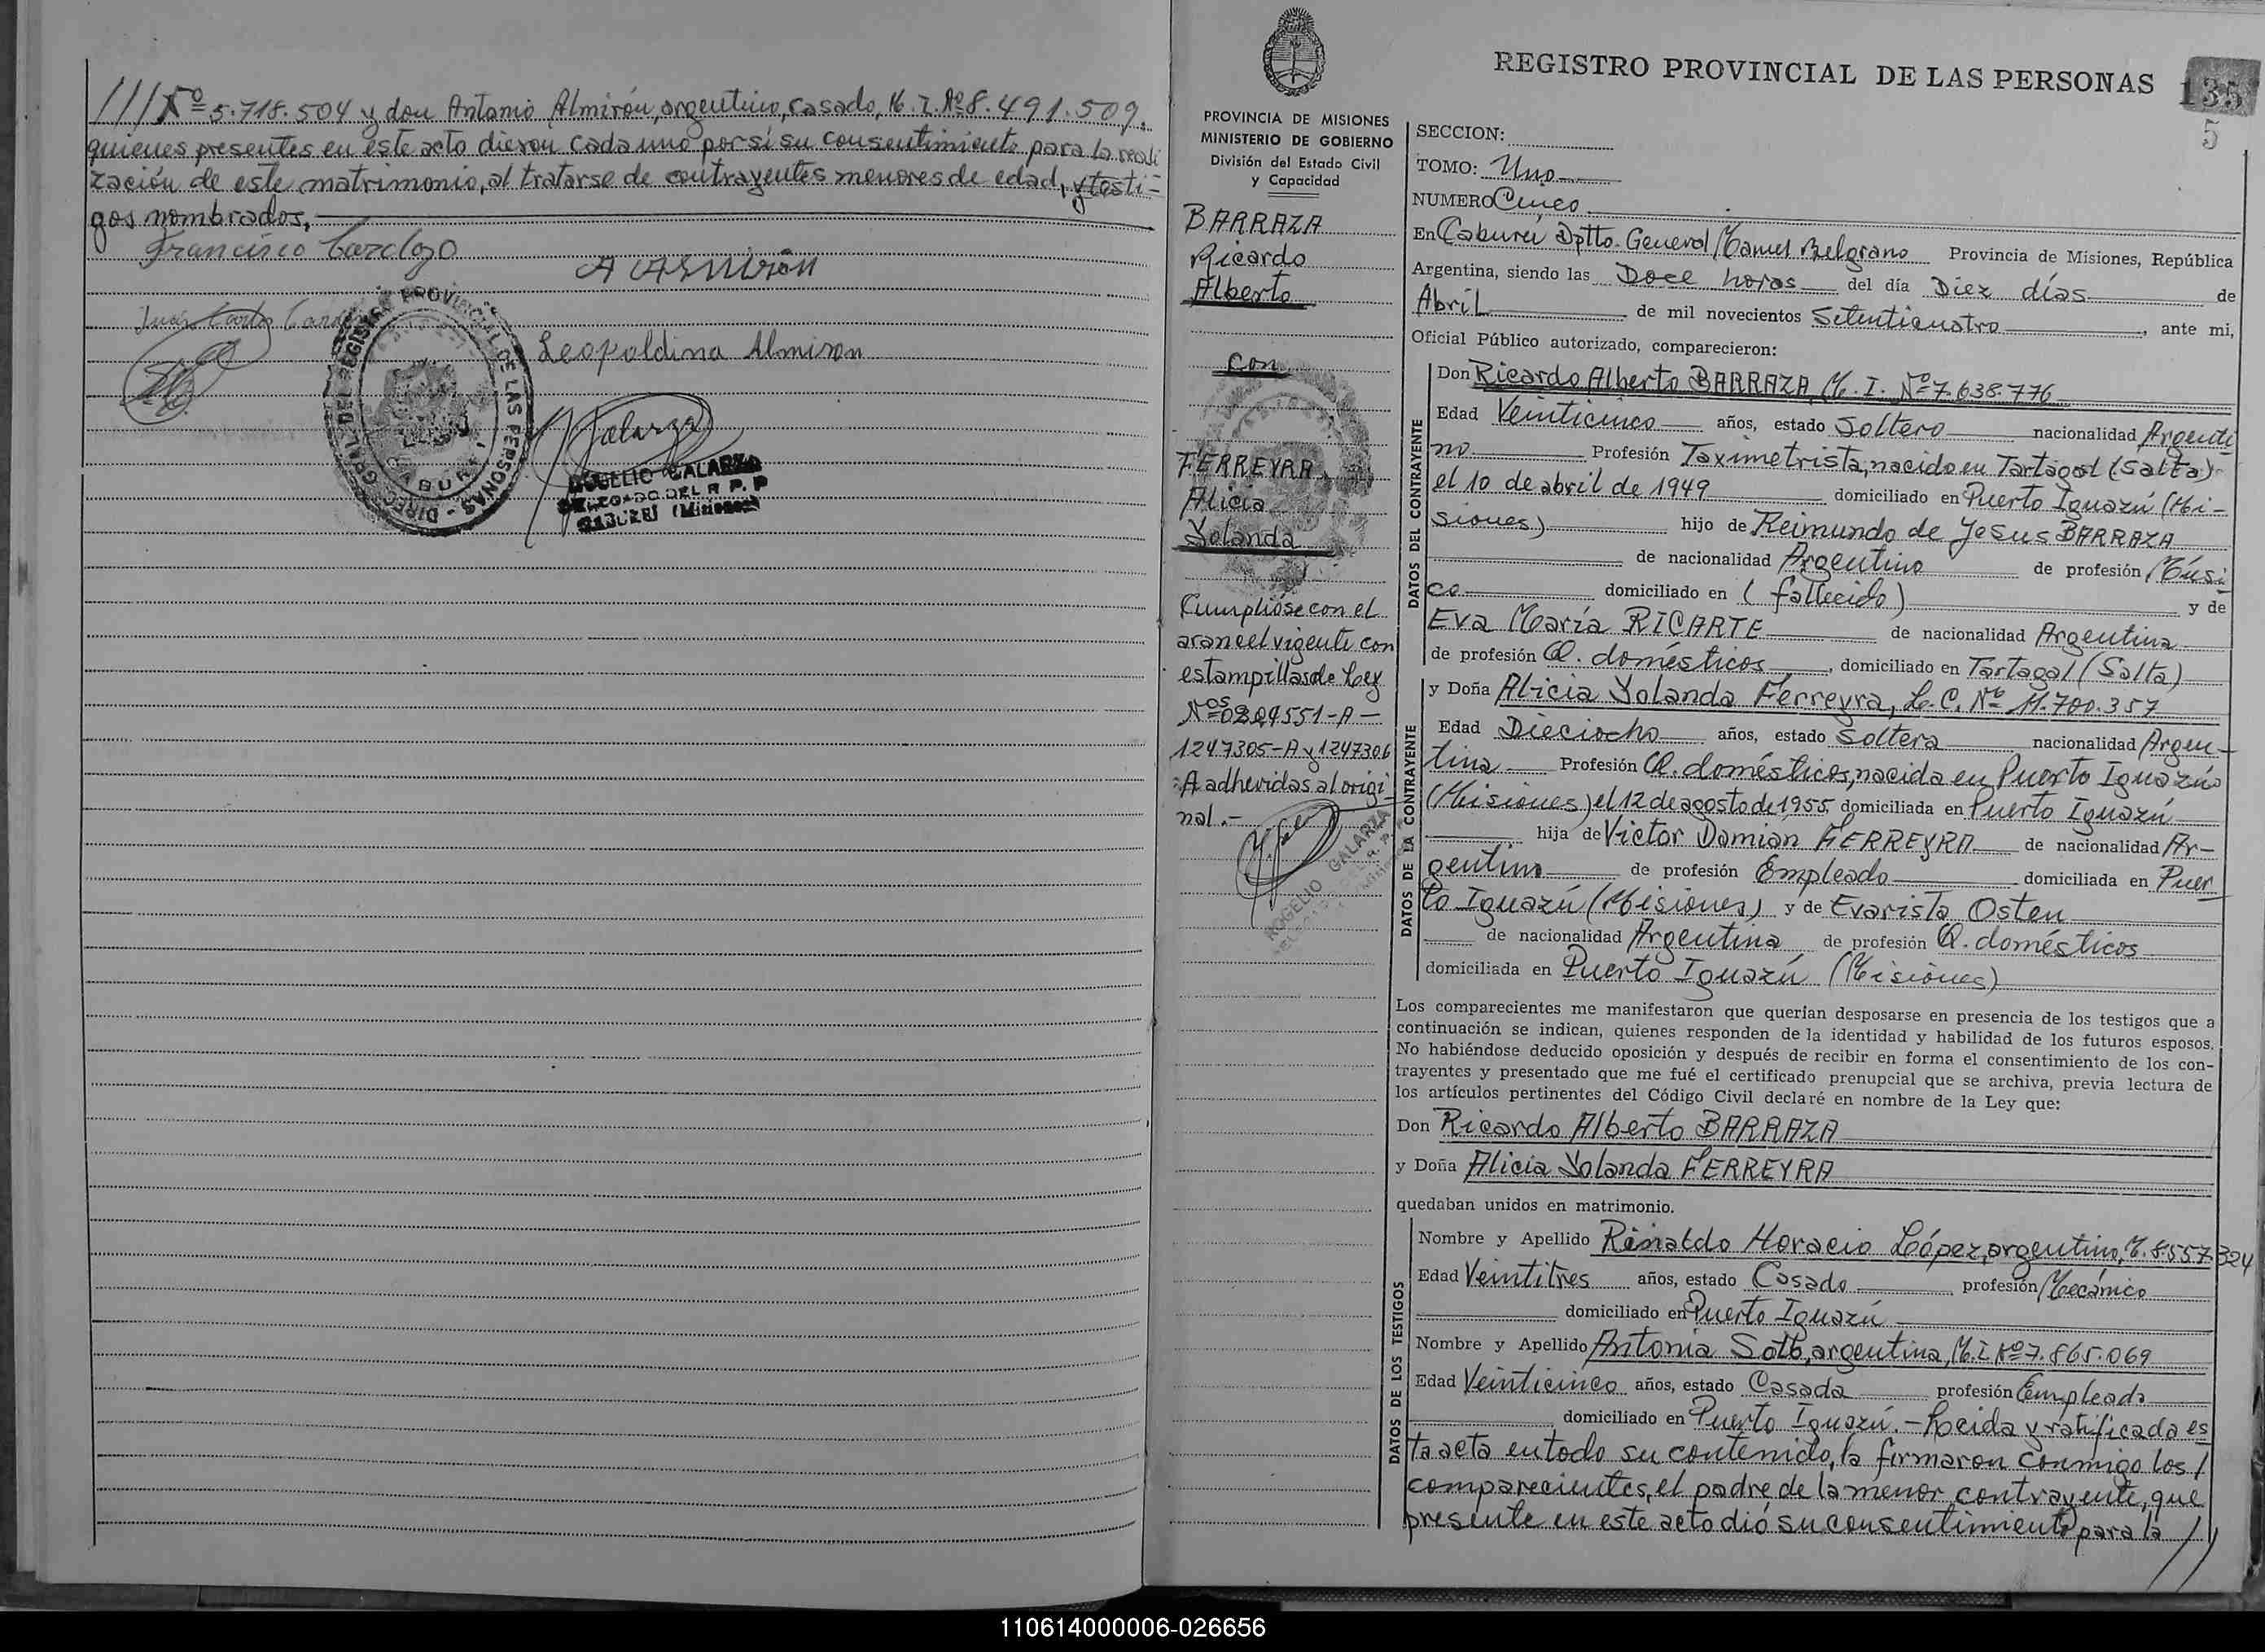 /// Nº 5.718.504 y don Antonio Almirón, argentino, casado, M.I. Nº 8.491.509,
quienes presentes en este acto dieron cada uno por sí su consentimiento para la reali
zación de este matrimonio, al tratarse de contrayentes menores de edad, y testi-
gos nombrados,
Francisco Cardozo
A Almirón
Juan Carlos
Leopoldina Almiron
DIREC. GRAL. DEL REGISTRO PROVINCIAL DE LAS PERSONAS -
CABUREI
Galarza
ROGELIO GALARZA
DELEGADO DEL R. P. P
CABUREI (Misiones)
PROVINCIA DE MISIONES
MINISTERIO DE GOBIERNO
División del Estado Civil
y Capacidad
BARRAZA
Ricardo
Alberto
con
FERREYRA
Alicia
Yolanda
Cumplióse con el
arancel vigente con
estampillas de Ley
Nºs
1247305-A y 1247306
-A adheridas al origi
nal.-
ROGELIO GALARZA
REGISTRO PROVINCIAL DE LAS PERSONAS
135
5
SECCION:
TOMO: Uno
NUMERO Cinco
En Caburei Dptto. General Manuel Belgrano Provincia de Misiones, República
Argentina, siendo las Doce horas del día Diez días de
Abril de mil novecientos Setenticuatro, ante mi,
Oficial Público autorizado, comparecieron:
DATOS DEL CONTRAYENTE
Don Ricardo Alberto BARRAZA, M.I. Nº 7.638.776
Edad Veinticinco años, estado Soltero nacionalidad Argenti
no Profesión Taximetrista, nacido en Tartagal (Salta)
el 10 de abril de 1949 domiciliado en Puerto Iguazú (Mi-
siones) hijo de Reimundo de Jesus BARRAZA
de nacionalidad Argentino de profesión Músi
co domiciliado en (fallecido) y de
Eva María RICARTE de nacionalidad Argentina
de profesión Q. domésticos, domiciliado en Tartagal (Salta)
DATOS DE LA CONTRAYENTE
y Doña Alicia Yolanda Ferreyra, L.C. Nº 11.700.357
Edad Dieciocho años, estado Soltera nacionalidad Argen-
tina Profesión Q. domésticos, nacida en Puerto Iguazú
(Misiones) el 12 de agosto de 1955, domiciliada en Puerto Iguazú
hija de Victor Damian FERREYRA de nacionalidad Ar-
gentino de profesión Empleado domiciliada en Puer
to Iguazú (Misiones) y de Evarista Osten
de nacionalidad Argentina de profesión Q. domésticos
domiciliada en Puerto Iguazú (Misiones)
Los comparecientes me manifestaron que querian desposarse en presencia de los testigos que a
continuación se indican, quienes responden de la identidad y habilidad de los futuros esposos.
No habiéndose deducido oposición y después de recibir en forma el consentimiento de los con-
trayentes y presentado que me fué el certificado prenupcial que se archiva, previa lectura de
los artículos pertinentes del Código Civil declaré en nombre de la Ley que:
Don Ricardo Alberto BARRAZA
y Doña Alicia Yolanda FERREYRA
quedaban unidos en matrimonio.
DATOS DE LOS TESTIGOS
Nombre y Apellido Rinaldo Horacio López, argentino, M. 8.557.324
Edad Veintitres años, estado Casado profesión Mecánico
domiciliado en Puerto Iguazú
Nombre y Apellido Antonia Soto, argentina, M.I. Nº 7.865.069
Edad Veinticinco años, estado Casada profesión Empleada
domiciliado en Puerto Iguazú.- Leida y ratificada es
ta acta en todo su contenido, la firmaron conmigo los /
comparecientes, el padre de la menor contrayente, que
presente en este acto dió su consentimiento para la //
110614000006-026656